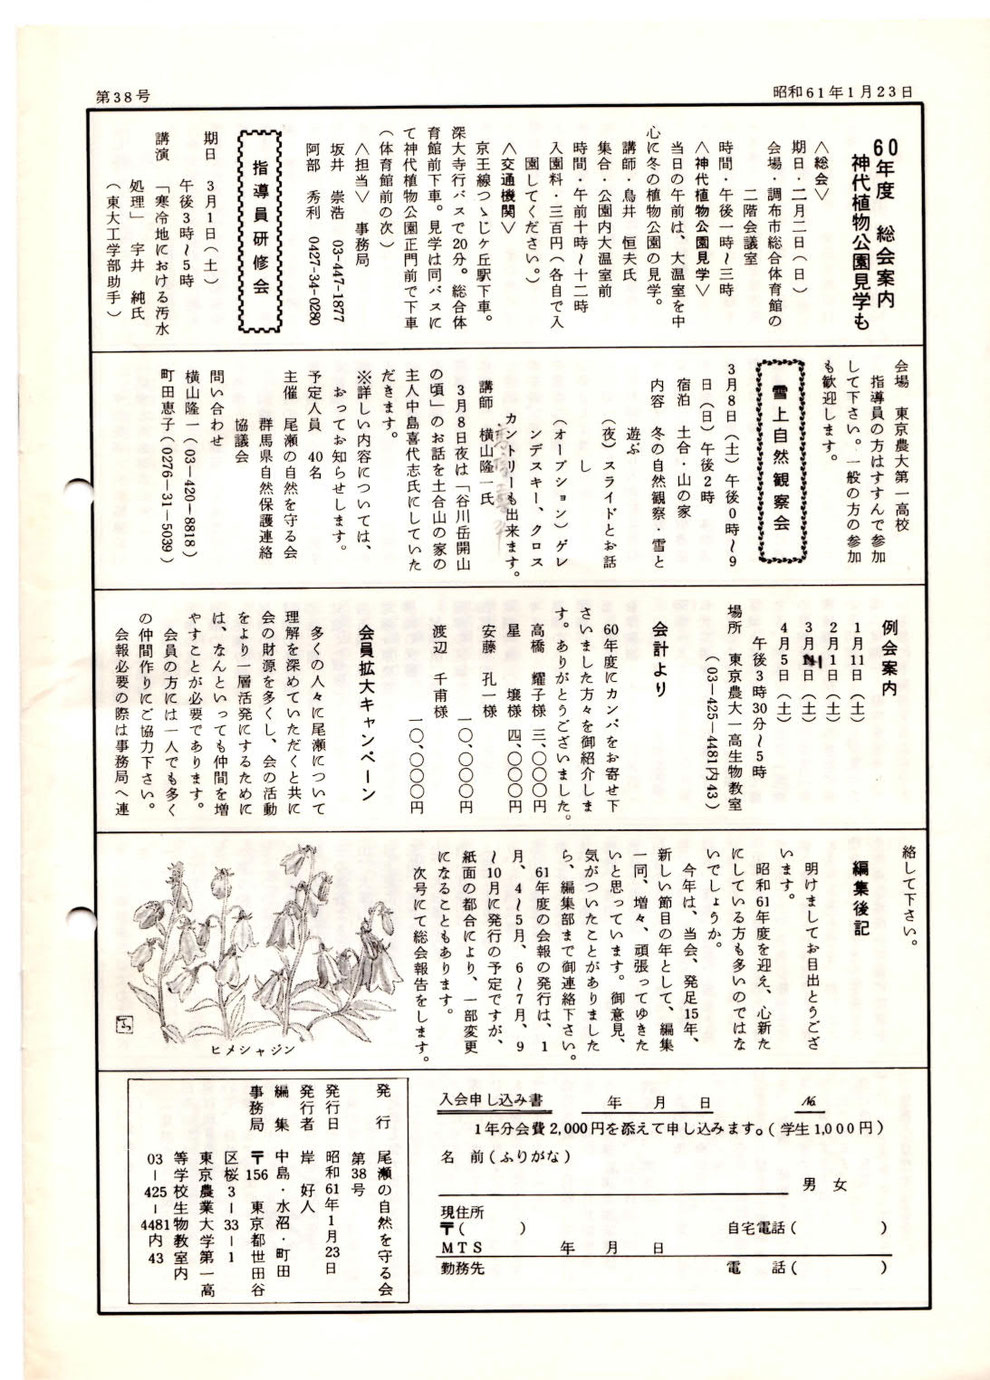 第38号
昭和61年1月23日
60年度　総会案内
神代植物公園見学も
〈総会〉
期日・二月二日（日）
会場・調布市総合体育館の
二階会議室
時間・午後一時〜三時
〈神代植物公園見学〉
当日の午前は、大温室を中
心に冬の植物公園の見学。
講師・鳥井　恒夫氏
集合・公園内大温室前
時間・午前十時〜十二時
入園料・三百円（各自で入
園してください。）
〈交通機関〉
京王線つゝじヶ丘駅下車。
深大寺行バスで20分。総合体
育館前下車。見学は同バスに
て神代植物公園正門前で下車
（体育館前の次）
〈担当〉　事務局
坂井　崇浩　03-447-1877
阿部　秀利　0427-34-0280
指導員研修会
期日　3月1日（土）
午後3時〜5時
講演　「寒冷地における汚水
処理」　宇井　純氏
（東大工学部助手）
会場　東京農大第一高校
指導員の方はすすんで参加
して下さい。一般の方の参加
も歓迎します。
雪上自然観察会
3月8日（土）午後0時〜9
日（日）午後2時
宿泊　土合・山の家
内容　冬の自然観察・雪と
遊ぶ
（夜）スライドとお話
し
（オープション）ゲレ
ンデスキー、クロス
カントリーも出来ます。
講師　横山隆一氏
3月8日夜は「谷川岳開山
の頃」のお話を土合山の家の
主人中島喜代志氏にしていた
だきます。
※詳しい内容については、
おってお知らせします。
予定人員　40名
主催　尾瀬の自然を守る会
群馬県自然保護連絡
協議会
問い合わせ
横山隆一（03-420-8818）
町田恵子（0276-31-5039）
例会案内
1月11日（土）
2月1日（土）
3月1日（土）
4月5日（土）
午後3時30分〜5時
場所　東京農大一高生物教室
（03-425-4481内43）
会計より
60年度にカンパをお寄せ下
さいました方々を御紹介しま
す。ありがとうございました。
高橋　耀子様　三、〇〇〇円
星　　壌様　四、〇〇〇円
安藤　孔一様
一〇、〇〇〇円
渡辺　千甫様
一〇、〇〇〇円
会員拡大キャンペーン
多くの人々に尾瀬について
理解を深めていただくと共に
会の財源を多くし、会の活動
をより一層活発にするために
は、なんといっても仲間を増
やすことが必要であります。
会員の方には一人でも多く
の仲間作りにご協力下さい。
会報必要の際は事務局へ連
絡して下さい。
編集後記
明けましてお目出とうござ
います。
昭和61年度を迎え、心新た
にしている方も多いのではな
いでしょうか。
今年は、当会、発足15年、
新しい節目の年として、編集
一同、増々、頑張ってゆきた
いと思っています。御意見、
気がついたことがありました
ら、編集部まで御連絡下さい。
61年度の会報の発行は、1
月、4〜5月、6〜7月、9
〜10月に発行の予定ですが、
紙面の都合により、一部変更
になることもあります。
次号にて総会報告をします。
ヒメシャジン
入会申し込み書　　年　月　日　　№
1年分会費2,000円を添えて申し込みます。（学生1,000円）
名　前（ふりがな）
男　女
現住所
〒（　　）　自宅電話（　　）
MTS　　年　月　日
勤務先　　電　話（　　）
発　行　尾瀬の自然を守る会
第38号
発行日　昭和61年1月23日
発行者　岸　好人
編　集　中島・水沼・町田
事務局　〒156　東京都世田谷
区桜3-33-1
東京農業大学第一高
等学校生物教室内
03-425-4481内43